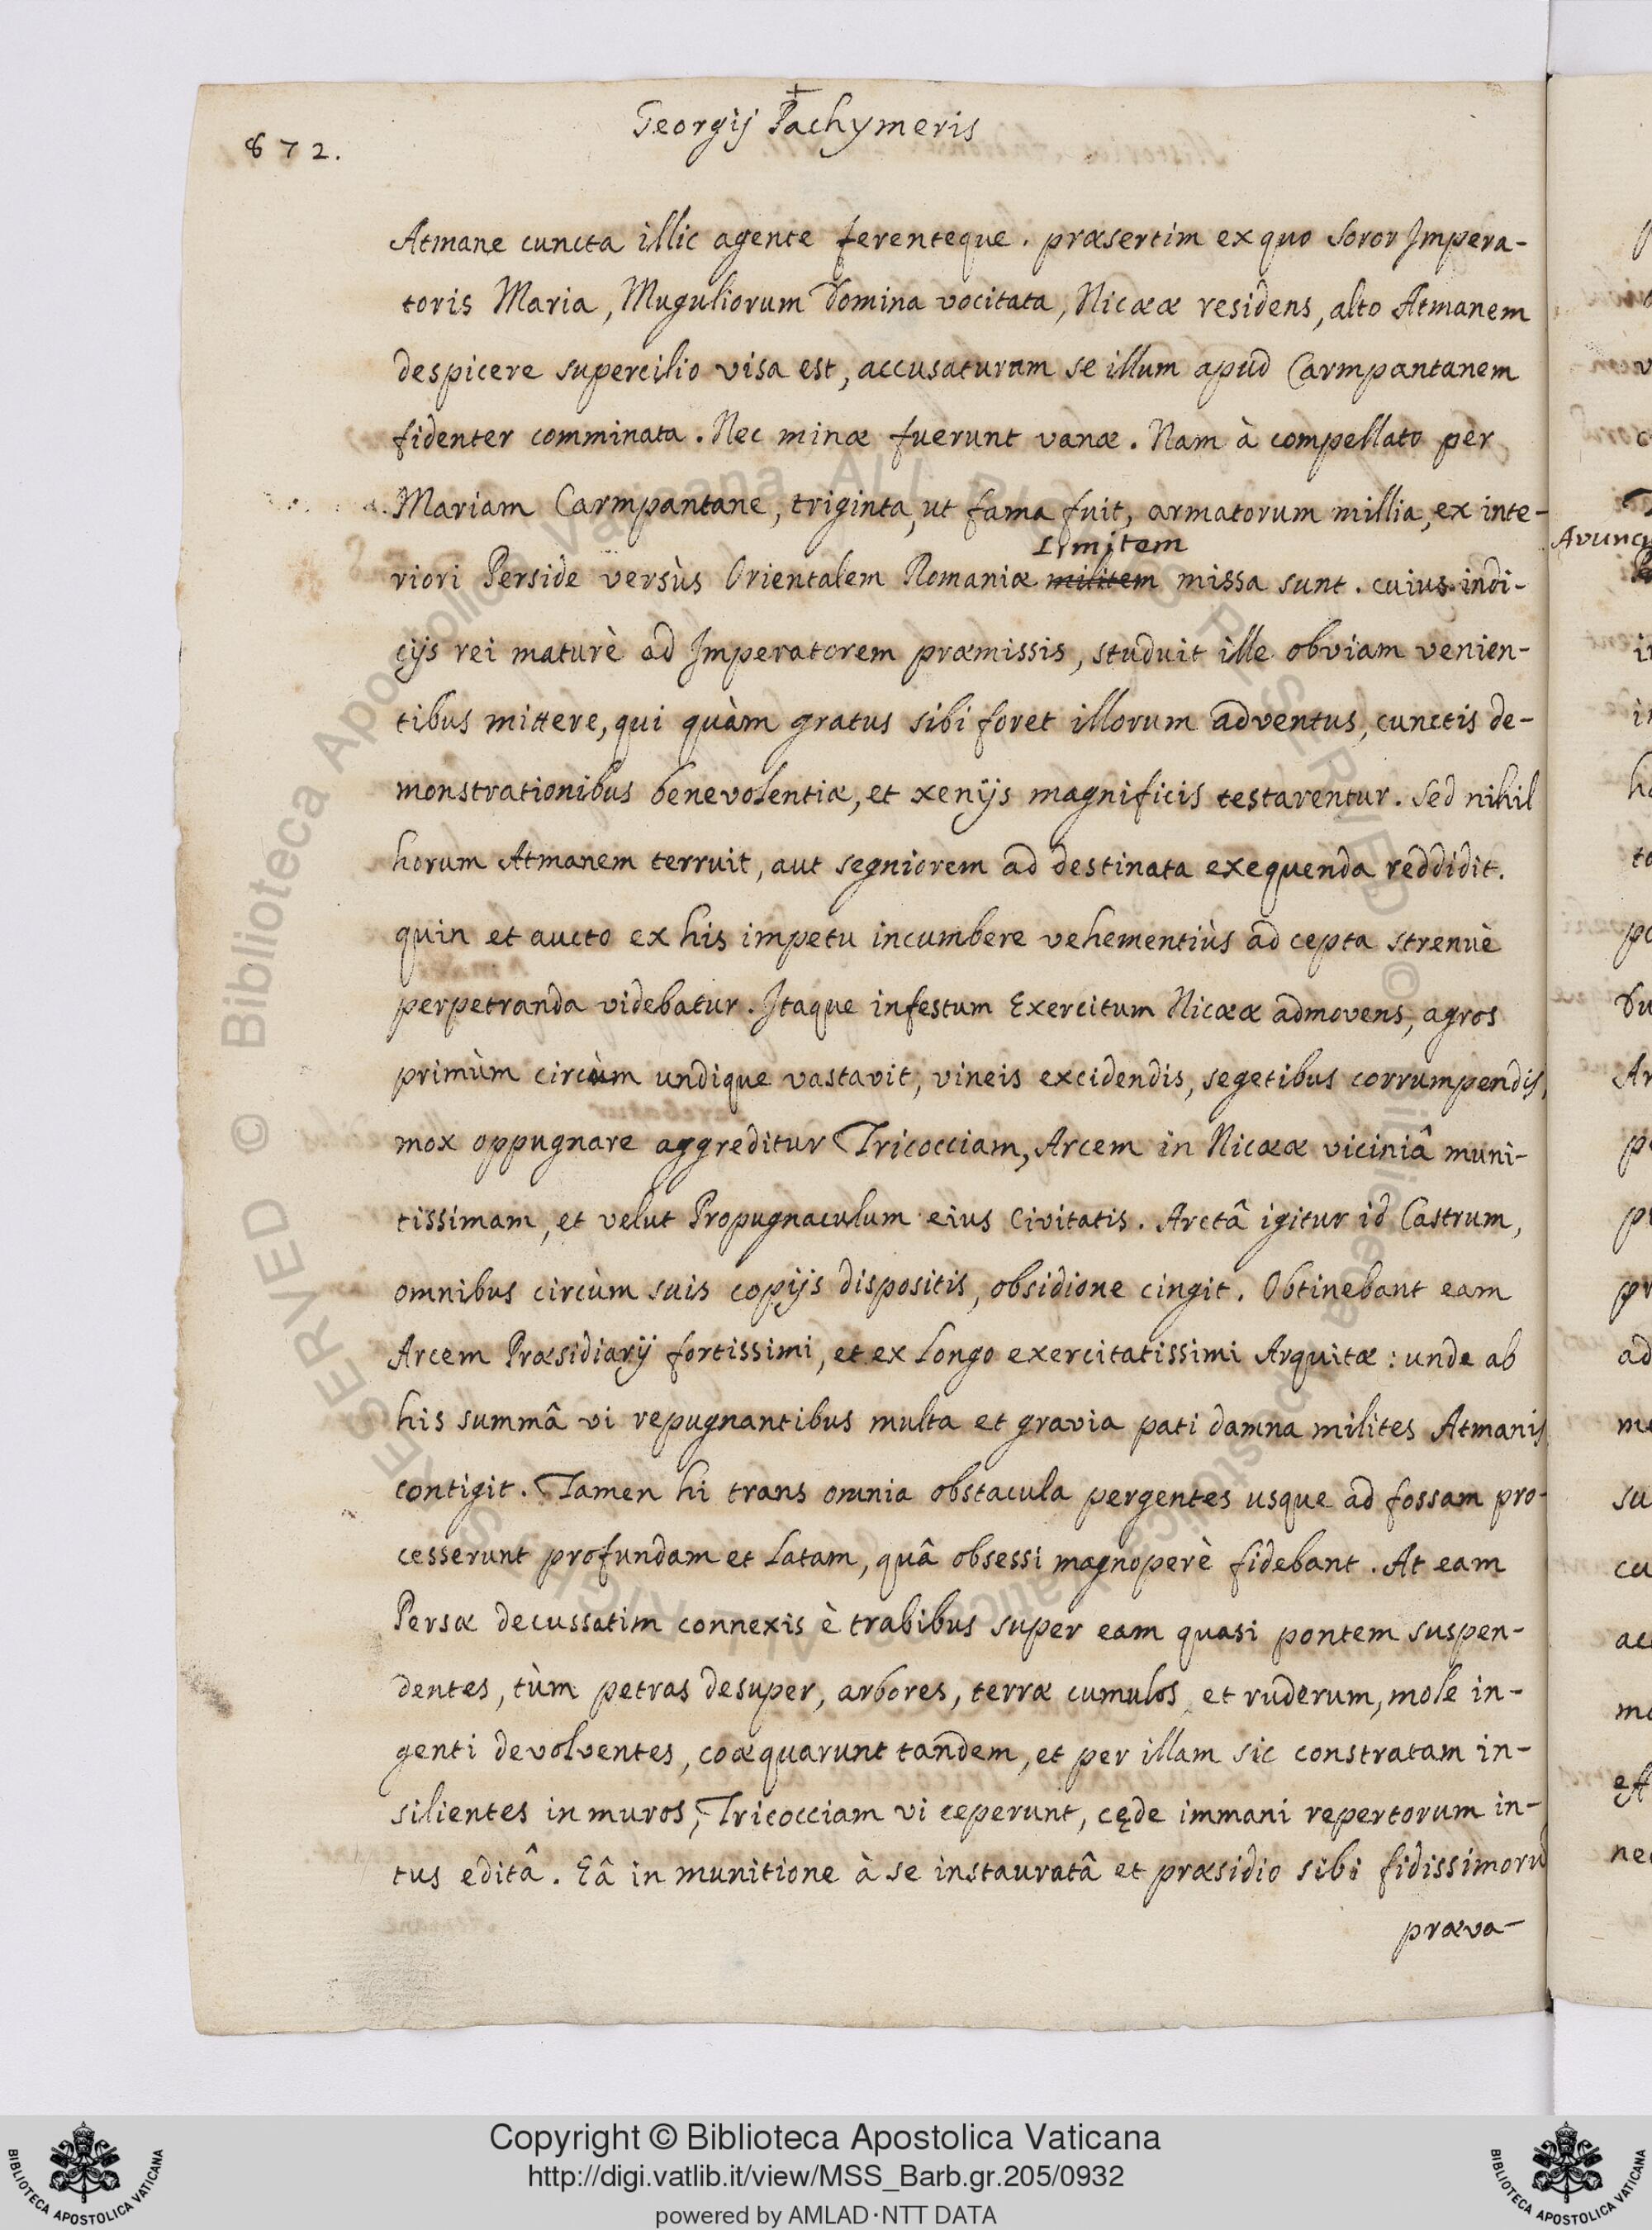 872.
Georgij Pachymeris
Atmane cuncta illic agente ferenteque. præsertim ex quo soror Impera-
toris Maria, Muguliorum Domina vocitata, Nicææ residens, alto Atmanem
despicere supercilio visa est, accusaturam se illum apud Carmpantanem
fidenter comminata. Nec minæ fuerunt vanæ. Nam à compellato per
Mariam Carmpantane, triginta, ut fama fuit, armatorum millia, ex inte-
Limitem
riori Perside versùs Orientalem Romaniæ militem missa sunt. cuius indi-
cijs rei maturè ad Imperatorem præmissis, studuit ille obviam venien-
tibus mittere, qui quàm gratus sibi foret illorum adventus, cunctis de-
monstrationibus benevolentiæ, et xenijs magnificis testarentur. Sed nihil
horum Atmanem terruit, aut segniorem ad destinata exequenda reddidit.
quin et aucto ex his impetu incumbere vehementiùs ad cepta strenuè
perpetranda videbatur. Itaque infestum Exercitum Nicææ admovens, agros
primùm circùm undique vastavit, vineis excidendis, segetibus corrumpendis,
mox oppugnare aggreditur Tricocciam, Arcem in Nicææ viciniâ muni-
tissimam, et velut Propugnaculum eius Civitatis. Arctâ igitur id Castrum,
omnibus circùm suis copijs dispositis, obsidione cingit. Obtinebant eam
Arcem Præsidiarij fortissimi, et ex Longo exercitatissimi Arquitæ: unde ab
his summâ vi repugnantibus multa et gravia pati damna milites Atmanis
contigit. Tamen hi trans omnia obstacula pergentes usque ad fossam pro-
cesserunt profundam et Latam, quâ obsessi magnoperè fidebant. At eam
Persæ decussatim connexis è trabibus super eam quasi pontem suspen-
dentes, tùm petras desuper, arbores, terræ cumulos, et ruderum, mole in-
genti devolventes, coæquarunt tandem, et per illam sic constratam in-
silientes in muros, Tricocciam vi ceperunt, cęde immani repertorum in-
tus editâ. Eâ in munitione à se instauratâ et præsidio sibi fidissimorū
præva-
Copyright © Biblioteca Apostolica Vaticana
http://digi.vatlib.it/view/MSS_Barb.gr.205/0932
powered by AMLAD·NTT DATA